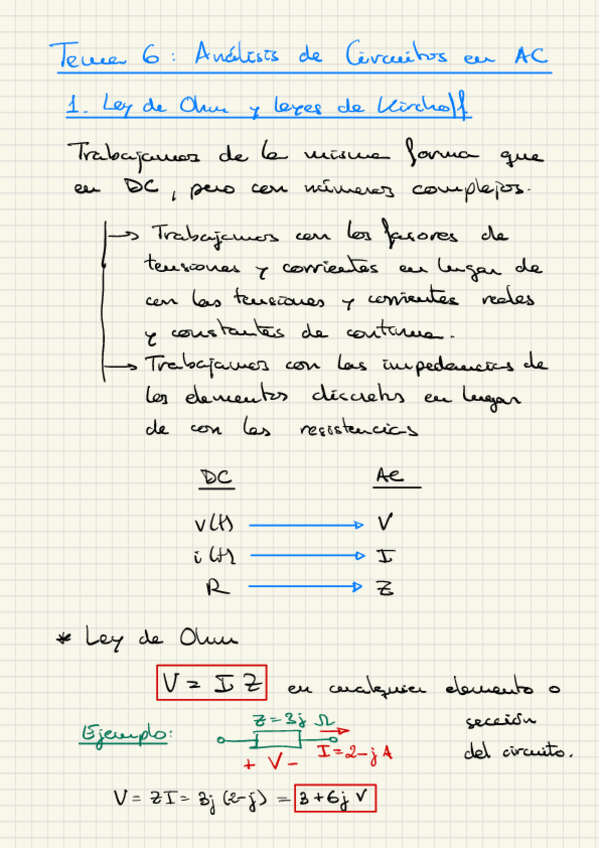 Tema 6: Análisis de Circuitos en AC
1. Ley de Ohm y leyes de Kirchoff
Trabajamos de la misma forma que
en DC, pero con números complejos.
→ Trabajamos con los fasores de
tensiones y corrientes en lugar de
con las tensiones y corrientes reales
y constantes de continua.
→ Trabajamos con las impedancias de
los elementos discretos en lugar
de con las resistencias
DC AC
v(t) → V
i(t) → I
R → Z
* Ley de Ohm
V = I Z en cualquier elemento o
sección
del circuito.
Ejemplo:
Z = 3j Ω
I = 2-j A
+ V -
V = ZI = 3j (2-j) = 3 + 6j V